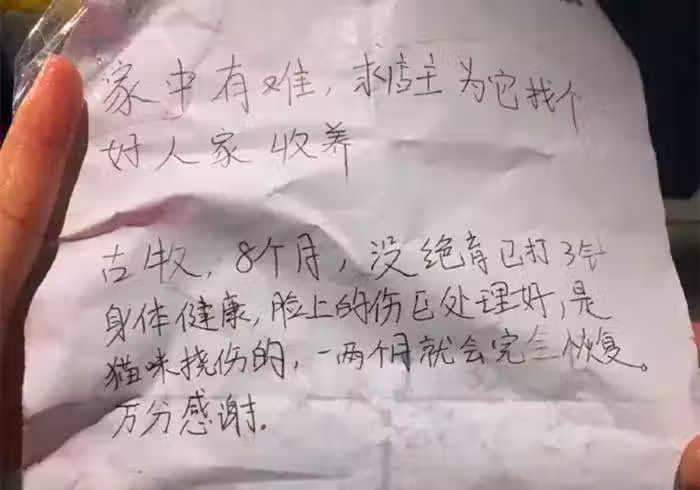 家中有难，求店主为它找个
好人家收养
古牧，8个月，没绝育已打3针
身体健康，脸上的伤已处理好，是
猫咪挠伤的，一两个月就会完全恢复。
万分感谢.